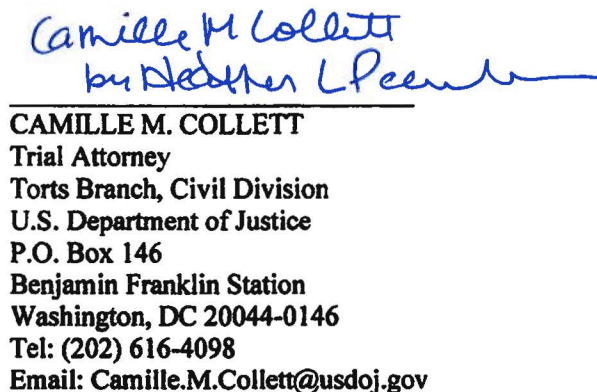 Camille M Collett
by Heather L
CAMILLE M. COLLETT
Trial Attorney
Torts Branch, Civil Division
U.S. Department of Justice
P.O. Box 146
Benjamin Franklin Station
Washington, DC 20044-0146
Tel: (202) 616-4098
Email: Camille.M.Collett@usdoj.gov